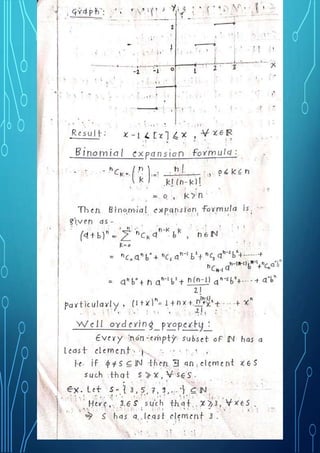 Graph:
y
2
1
-2 -1 0 1 2 3 x
Result: x-1 < [x] ≤ x , ∀ x∈R
Binomial expansion formula:
ⁿCₖ = (n k) = n! / k!(n-k)! , 0≤k≤n
= 0 , k>n
Then Binomial expansion formula is
given as -
(a+b)ⁿ = Σ ⁿCₖ aⁿ⁻ᵏ bᵏ , n∈N
k=0
= ⁿC₀ aⁿb⁰ + ⁿC₁ aⁿ⁻¹b¹ + ⁿC₂ aⁿ⁻²b² + ------ +
ⁿCₙ₋₁ aⁿ⁻⁽ⁿ⁻¹⁾ bⁿ⁻¹ + ⁿCₙ a⁰bⁿ
= aⁿb⁰ + n aⁿ⁻¹b¹ + n(n-1)/2! aⁿ⁻²b² + ---- + a⁰bⁿ
particularly, (1+x)ⁿ = 1 + nx + ... + xⁿ
Well ordering property:
Every non-empty subset of N has a
least element.
ie if φ ≠ S ⊆ N then ∃ an element x∈S
such that s ≥ x, ∀ s∈S.
Ex. Let S = {3, 5, 7, 9, ...} ⊆ N
Here, 3∈S such that x ≥ 3, ∀ x∈S
⇒ S has a least element 3.